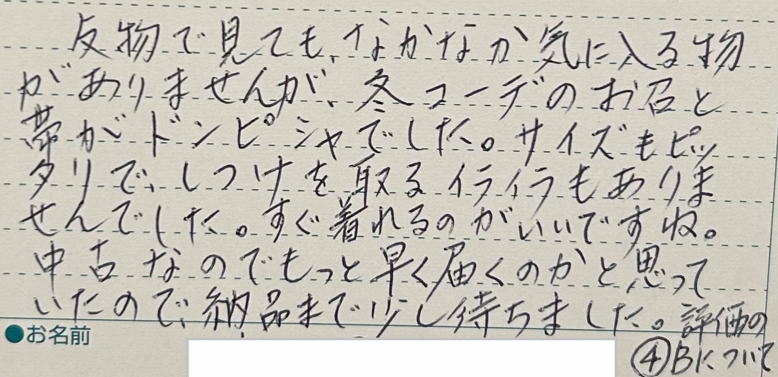 反物で見ても、なかなか気に入る物
がありませんが、冬コーデのお召と
帯がドンピシャでした。サイズもピッ
タリで、しつけを取るイライラもありま
せんでした。すぐ着れるのがいいですね。
中古なのでもっと早く届くのかと思って
いたので、納品まで少し待ちました。評価の
④Bについて
●お名前